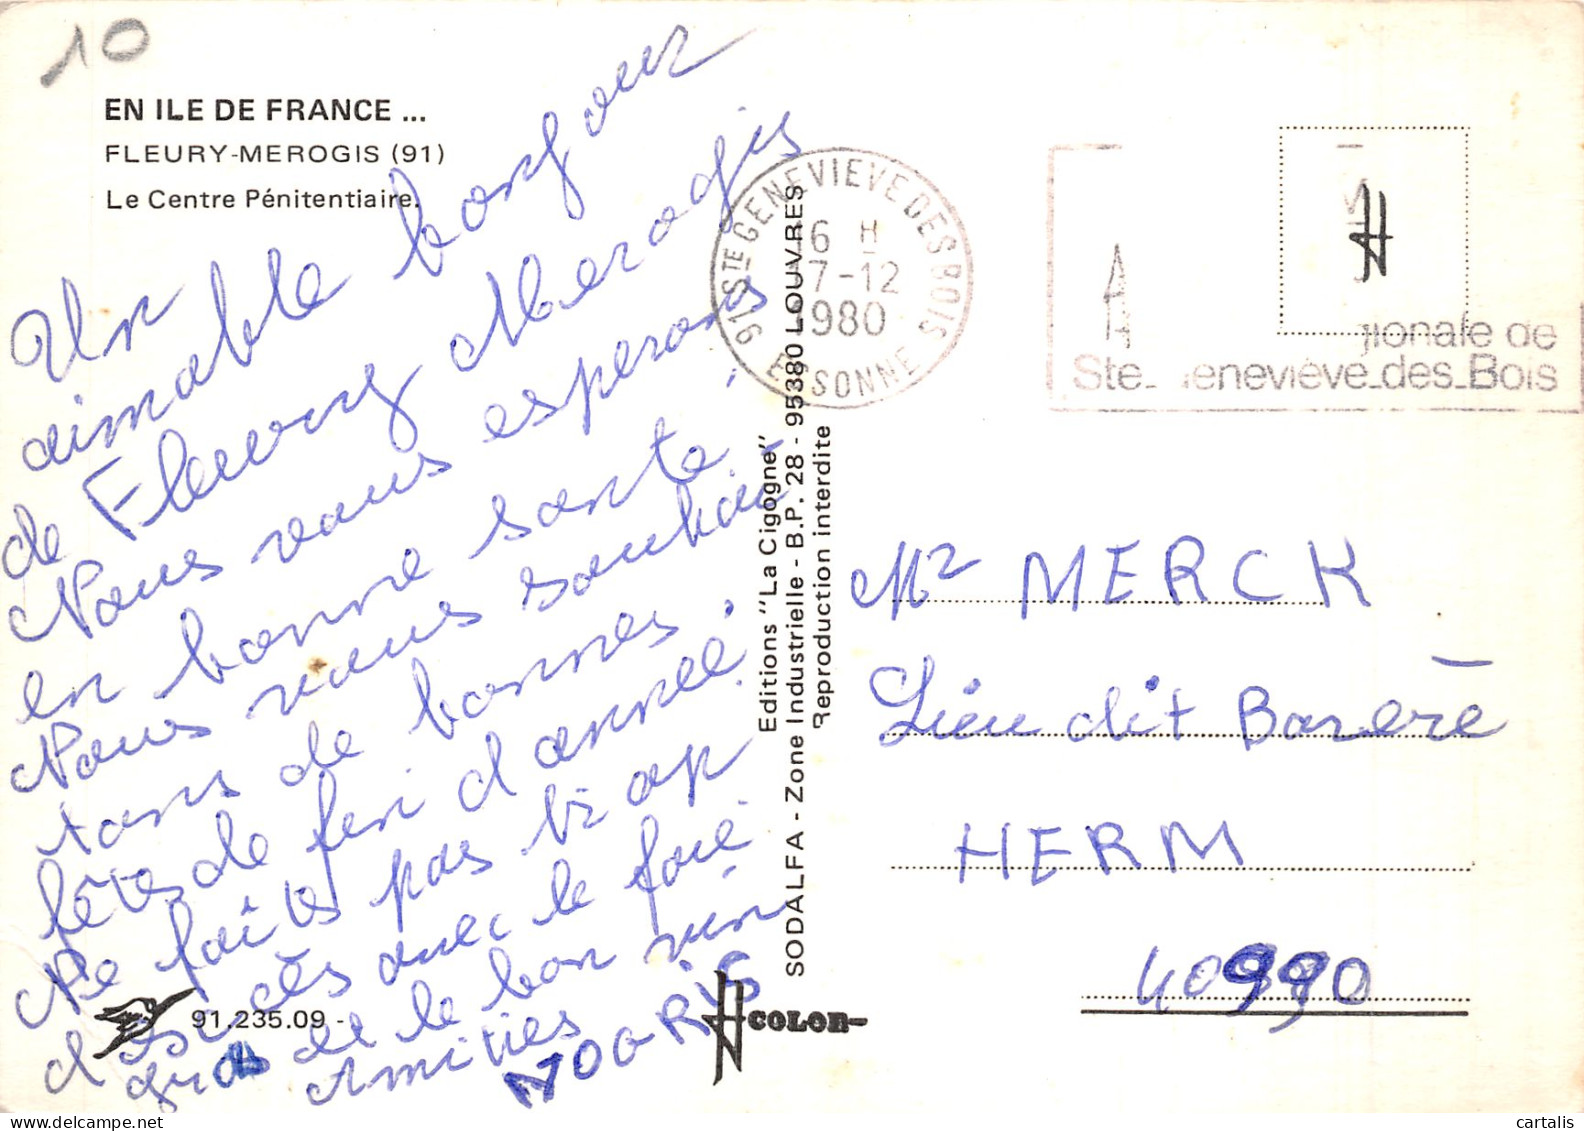 10
EN ILE DE FRANCE ...
FLEURY-MEROGIS (91)
Le Centre Pénitentiaire.
Un
aimable bonjour
de Fleury Merogis
Nous vous esperons
en bonne santé.
Nous vous souhai
tons de bonnes
fêtes de fin d'année.
Ne faites pas trop
d'excès avec le foie
gras et le bon vin
Amitiés
91.235.09 -
COLOR
Editions "La Cigogne"
SODALFA - Zone Industrielle - B.P. 28 - 95380 LOUVRES
Reproduction interdite
91 STE GENEVIEVE DES BOIS
16 H
17-12
1980
ESSONNE
gionale de
Ste Geneviève des Bois
Mr MERCK
Lieu dit Barère
HERM
40990
cartalis